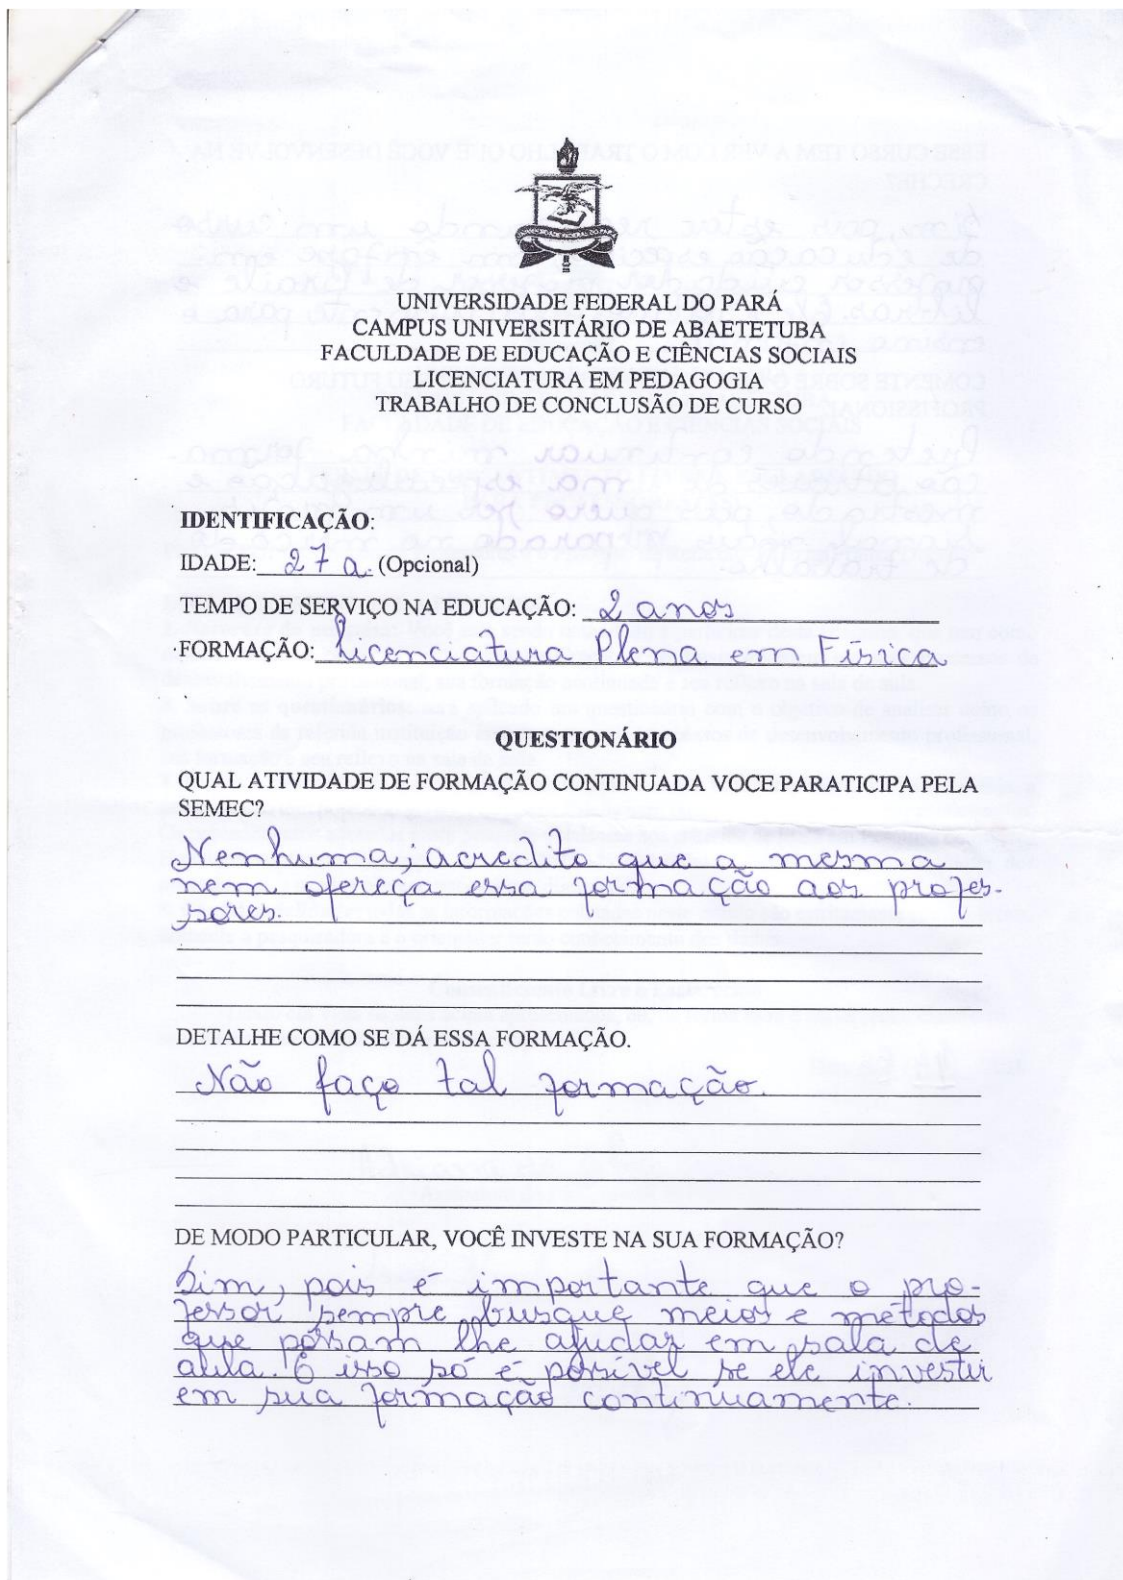 UNIVERSIDADE FEDERAL DO PARÁ
UNIVERSIDADE FEDERAL DO PARÁ
CAMPUS UNIVERSITÁRIO DE ABAETETUBA
FACULDADE DE EDUCAÇÃO E CIÊNCIAS SOCIAIS
LICENCIATURA EM PEDAGOGIA
TRABALHO DE CONCLUSÃO DE CURSO
IDENTIFICAÇÃO:
IDADE: 27 a. (Opcional)
TEMPO DE SERVIÇO NA EDUCAÇÃO: 2 anos
FORMAÇÃO: Licenciatura Plena em Física
QUESTIONÁRIO
QUAL ATIVIDADE DE FORMAÇÃO CONTINUADA VOCE PARATICIPA PELA
SEMEC?
Nenhuma; acredito que a mesma
nem ofereça essa formação aos profes-
sores.
DETALHE COMO SE DÁ ESSA FORMAÇÃO.
Não faço tal formação.
DE MODO PARTICULAR, VOCÊ INVESTE NA SUA FORMAÇÃO?
Sim, pois é importante que o pro-
fessor sempre busque meios e métodos
que possam lhe ajudar em sala de
aula. E isso só é possível se ele investir
em sua formação continuamente.